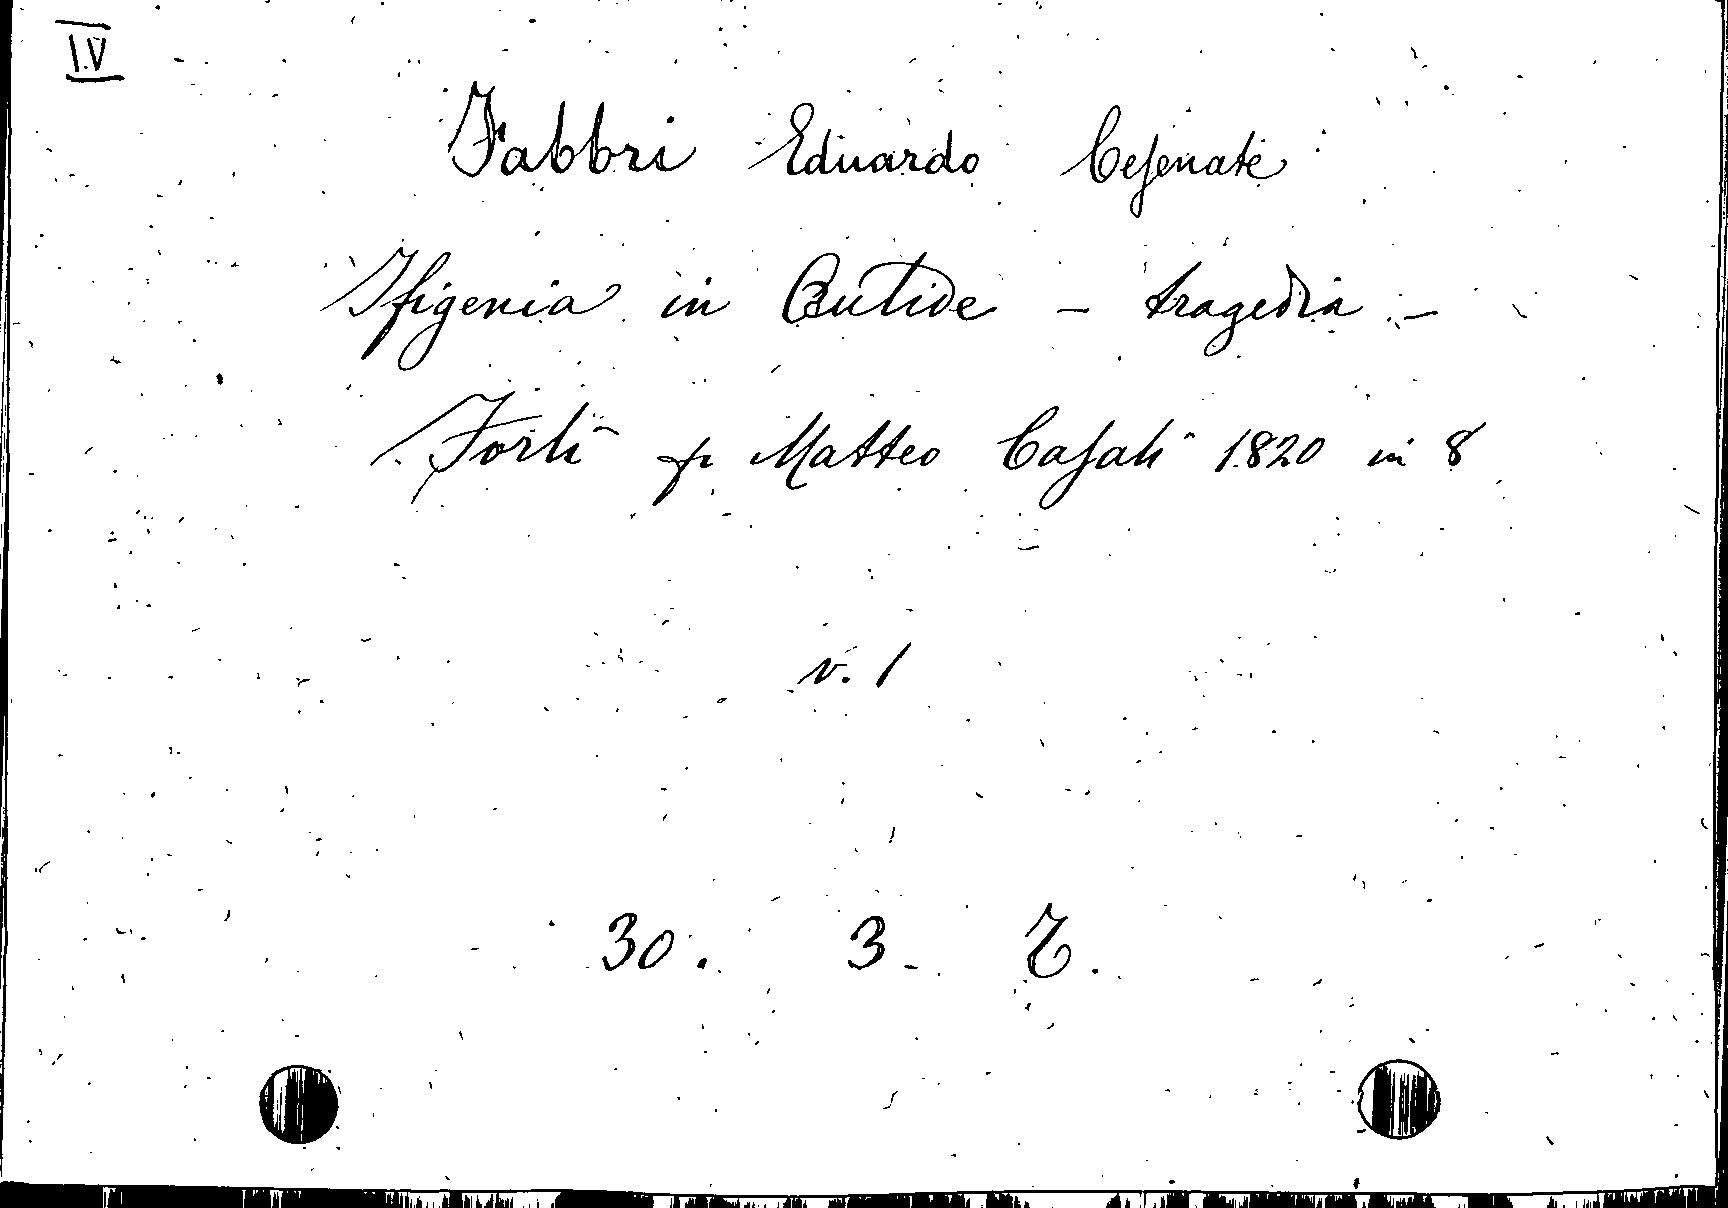 I.V
Fabbri Eduardo Cesenate
Ifigenia in Aulide - tragedia -
Forlì p Matteo Casali 1820 in 8
v. 1
30. 3. 7.